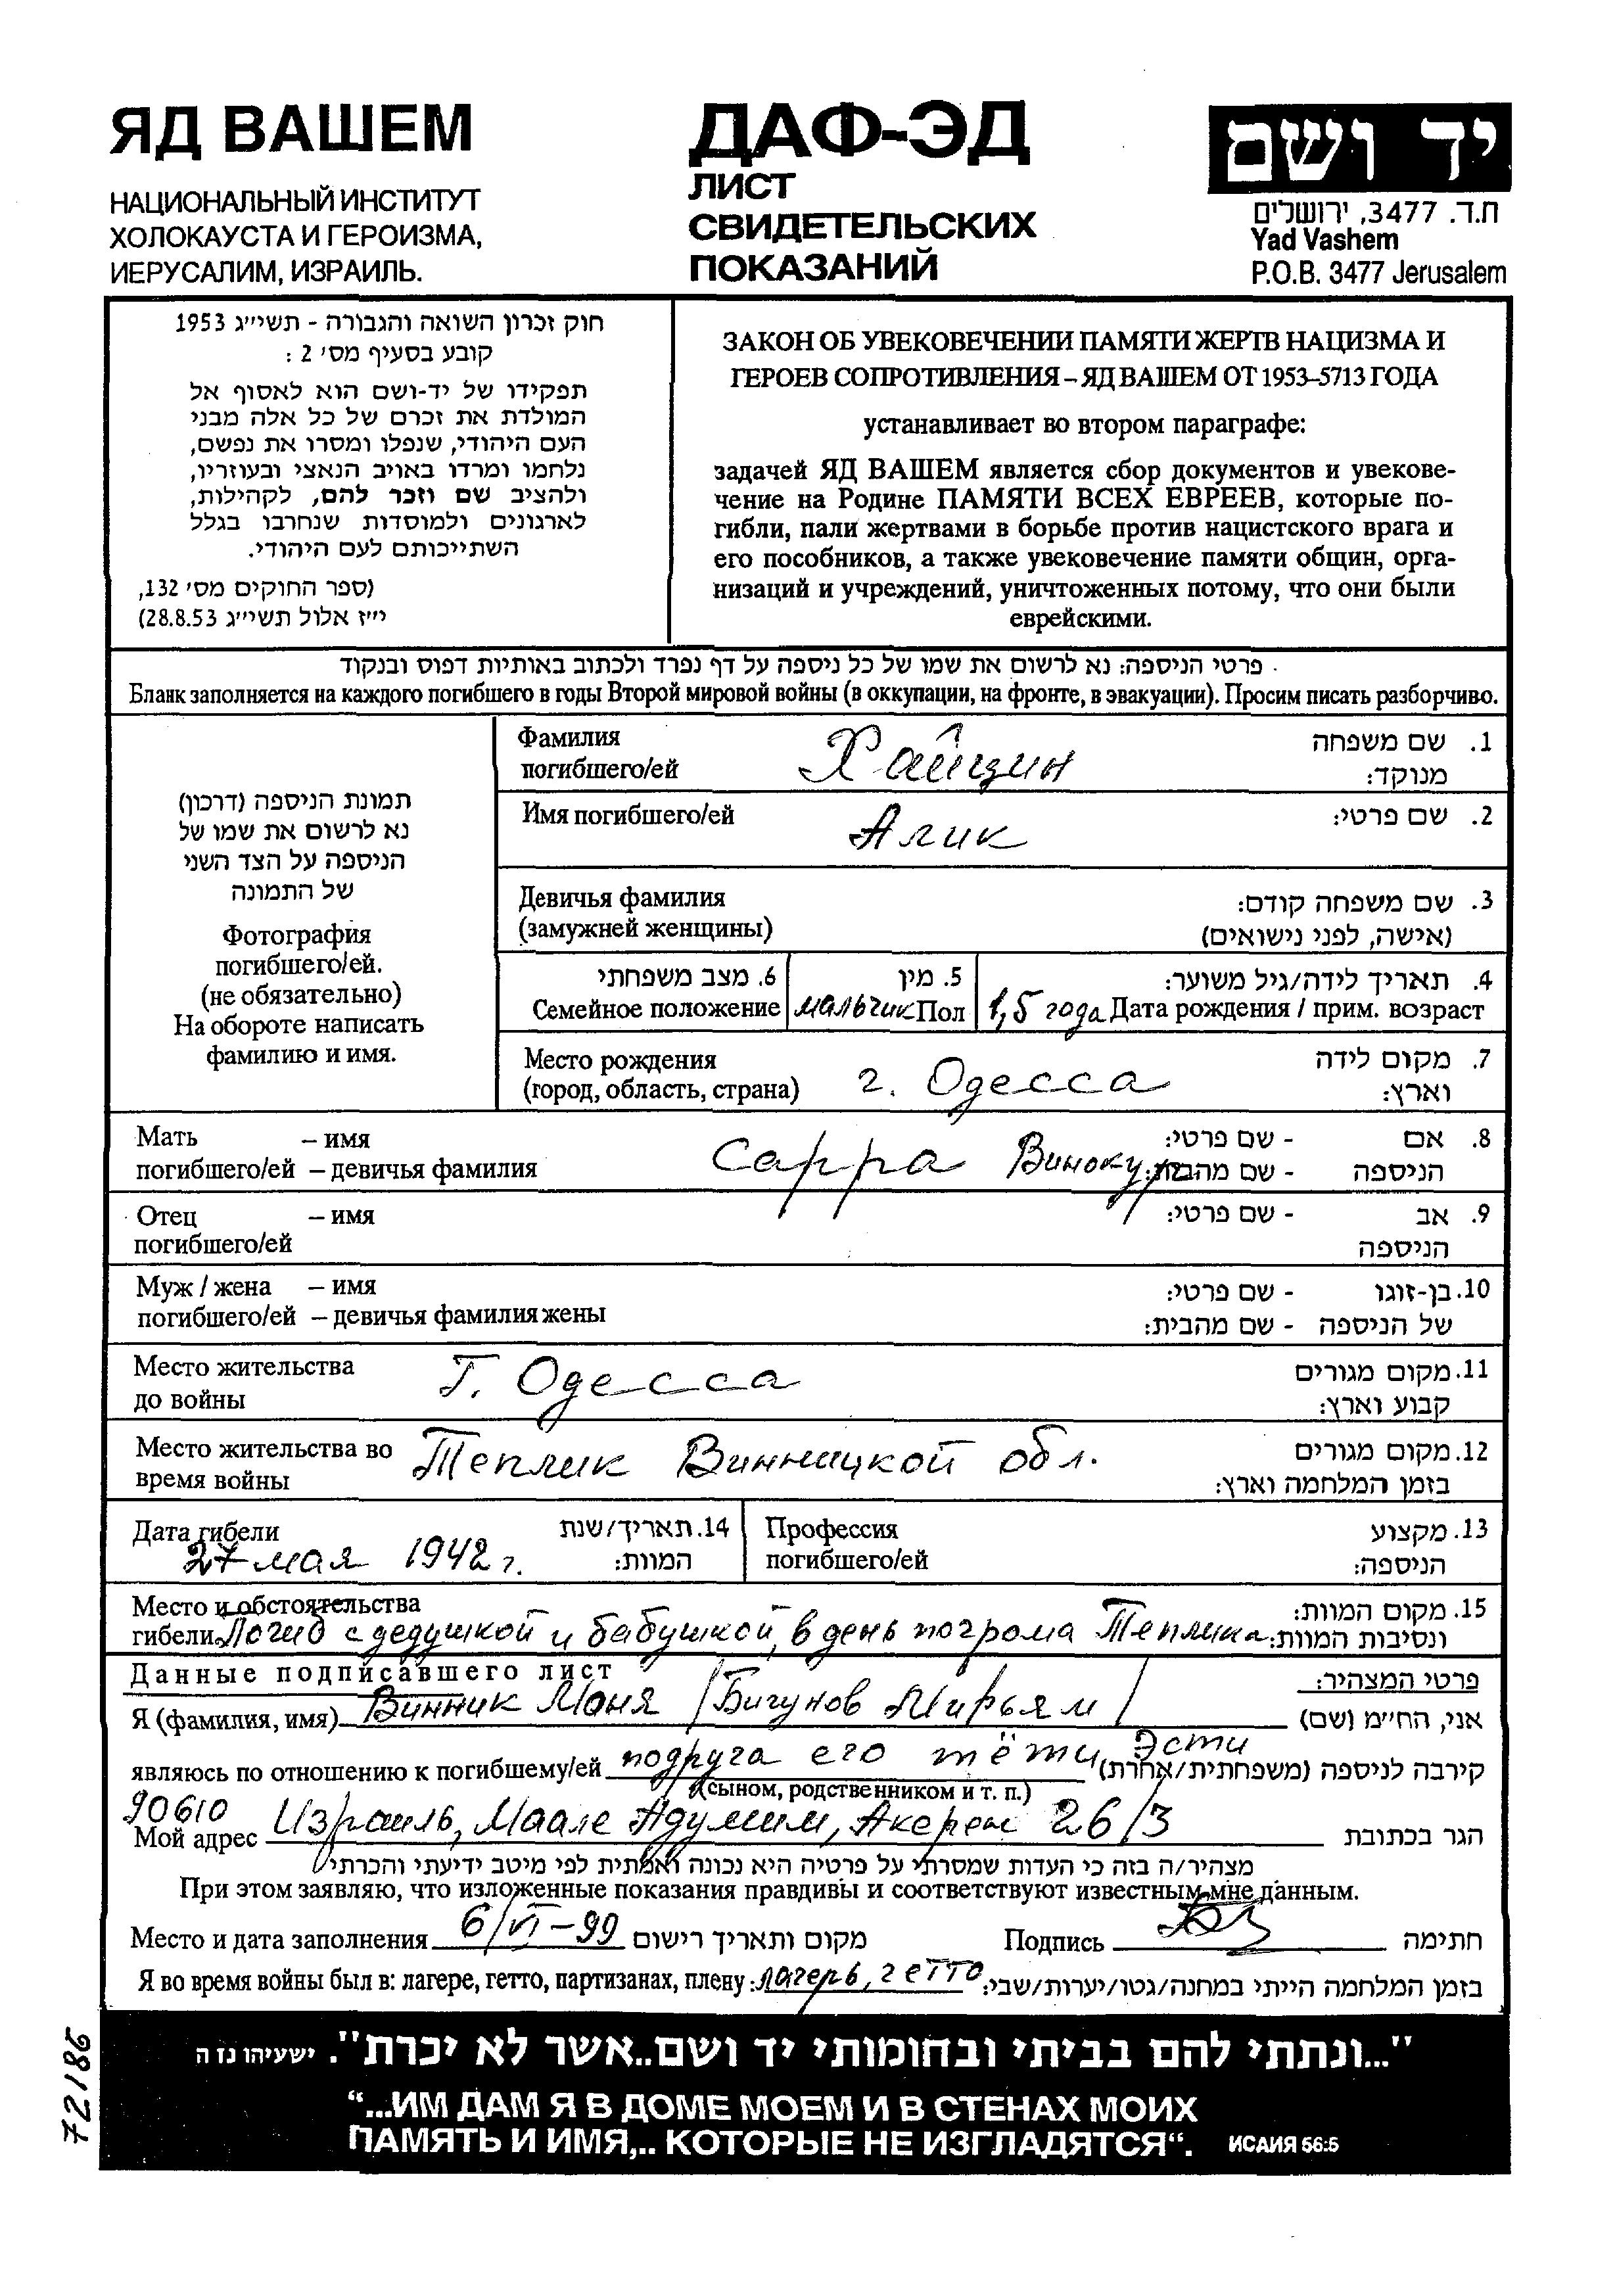 ЯД ВАШЕМ
НАЦИОНАЛЬНЫЙ ИНСТИТУТ
ХОЛОКАУСТА И ГЕРОИЗМА,
ИЕРУСАЛИМ, ИЗРАИЛЬ.
ДАФ-ЭД
ЛИСТ
СВИДЕТЕЛЬСКИХ
ПОКАЗАНИЙ
יד ושם
ת.ד. 3477, ירושלים
Yad Vashem
P.O.B. 3477 Jerusalem
חוק זכרון השואה והגבורה - תשי״ג 1953
קובע בסעיף מס׳ 2 :
תפקידו של יד-ושם הוא לאסוף אל
המולדת את זכרם של כל אלה מבני
העם היהודי, שנפלו ומסרו את נפשם,
נלחמו ומרדו באויב הנאצי ובעוזריו,
ולהציב שם וזכר להם, לקהילות,
לארגונים ולמוסדות שנחרבו בגלל
השתייכותם לעם היהודי.
(ספר החוקים מס׳ 132,
י״ז אלול תשי״ג 28.8.53)
ЗАКОН ОБ УВЕКОВЕЧЕНИИ ПАМЯТИ ЖЕРТВ НАЦИЗМА И
ГЕРОЕВ СОПРОТИВЛЕНИЯ – ЯД ВАШЕМ ОТ 1953–5713 ГОДА
устанавливает во втором параграфе:
задачей ЯД ВАШЕМ является сбор документов и увекове-
чение на Родине ПАМЯТИ ВСЕХ ЕВРЕЕВ, которые по-
гибли, пали жертвами в борьбе против нацистского врага и
его пособников, а также увековечение памяти общин, орга-
низаций и учреждений, уничтоженных потому, что они были
еврейскими.
פרטי הניספה: נא לרשום את שמו של כל ניספה על דף נפרד ולכתוב באותיות דפוס ובנקוד
Бланк заполняется на каждого погибшего в годы Второй мировой войны (в оккупации, на фронте, в эвакуации). Просим писать разборчиво.
תמונת הניספה (דרכון)
נא לרשום את שמו של
הניספה על הצד השני
של התמונה
Фотография
погибшего/ей.
(не обязательно)
На обороте написать
фамилию и имя.
Фамилия Хайцин 1. שם משפחה
погибшего/ей מנוקד:
Имя погибшего/ей Алик 2. שם פרטי:
Девичья фамилия 3. שם משפחה קודם:
(замужней женщины) (אישה, לפני נישואים)
6. מצב משפחתי 5. מין 4. תאריך לידה/גיל משוער:
Семейное положение мальчик Пол 1,5 года Дата рождения / прим. возраст
Место рождения 7. מקום לידה
(город, область, страна) г. Одесса וארץ:
Мать – имя 8. אם - שם פרטי:
погибшего/ей – девичья фамилия Сарра Винокур הניספה - שם מהבית:
Отец – имя 9. אב - שם פרטי:
погибшего/ей הניספה
Муж / жена – имя 10. בן-זוגו - שם פרטי:
погибшего/ей – девичья фамилия жены של הניספה - שם מהבית:
Место жительства Г. Одесса 11. מקום מגורים
до войны קבוע וארץ:
Место жительства во Теплик Винницкой обл. 12. מקום מגורים
время войны בזמן המלחמה וארץ:
Дата гибели 14. תאריך/שנת
27 мая 1942 г. המוות:
Профессия 13. מקצוע
погибшего/ей הניספה:
Место и обстоятельства 15. מקום המוות:
гибели Погиб с дедушкой и бабушкой, в день погрома Теплика ונסיבות המוות:
Данные подписавшего лист פרטי המצהיר:
Я (фамилия, имя) Винник Маня /Бигунов Мирьям/ אני, הח״מ (שם)
являюсь по отношению к погибшему/ей подруга его тёти Эсти קירבה לניספה (משפחתית/אחרת)
(сыном, родственником и т. п.)
90610
Мой адрес Израиль, Маале Адумим, 26/3 הגר בכתובת
מצהיר/ה בזה כי העדות שמסרתי על פרטיה היא נכונה ואמתית לפי מיטב ידיעתי והכרתי
При этом заявляю, что изложенные показания правдивы и соответствуют известным мне данным.
Место и дата заполнения 6/VI-99 מקום ותאריך רישום Подпись חתימה
Я во время войны был в: лагере, гетто, партизанах, плену: лагерь, гетто בזמן המלחמה הייתי במחנה/גטו/יערות/שבי:
"...ונתתי להם בביתי ובחומותי יד ושם..אשר לא יכרת". ישעיהו נו ה
“...ИМ ДАМ Я В ДОМЕ МОЕМ И В СТЕНАХ МОИХ
ПАМЯТЬ И ИМЯ,.. КОТОРЫЕ НЕ ИЗГЛАДЯТСЯ“. ИСАИЯ 56:5
72186